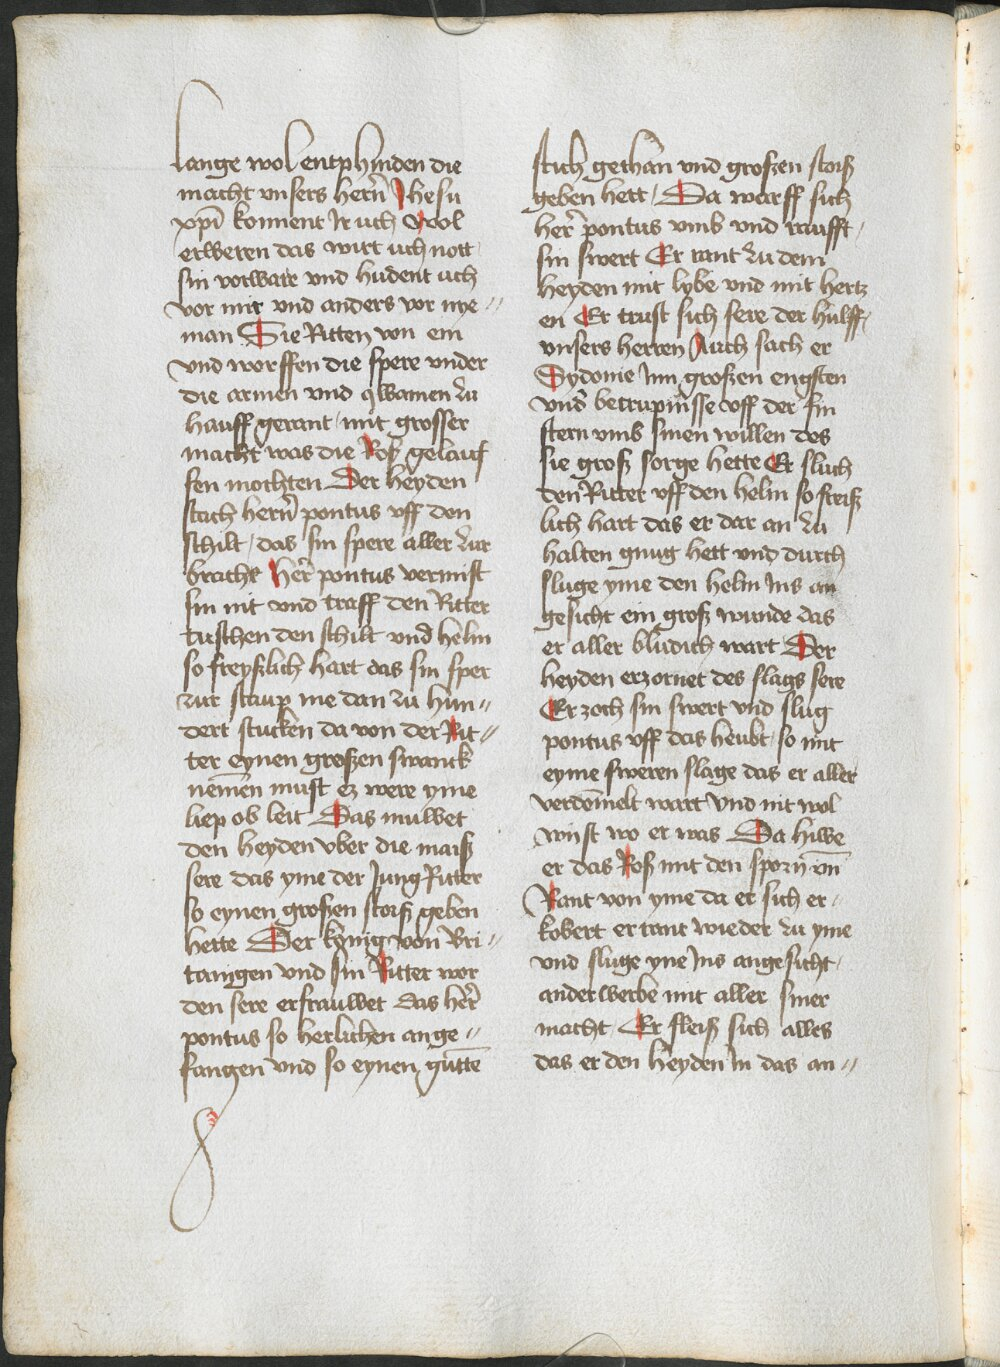 lange wol entphinden die
macht vnsers hern̄ Jhesu
xp̄i konnent Ir uch Wol
erweren das wirt uch nott
sin vorware vnd hudent uch
vor mir vnd anders vor nye〃
man Sie Ritten von ein
vnd worffen die spere vnder
die armen vnd qwamen zu
hauff gerant / mit grosser
macht was die Roß gelauf
fen mochten Der heyden
stach hern̄ pontus vff den
schilt / das sin spere aller zur
bracht Her̄ pontus vermist
sin nit vnd traff den Ritter
tuschen den schilt vnd helm
so freyßlich hart das sin sper
zur staup me dan zu hun〃
dert stucken da von der Rit〃
ter eynen großen swanck
nemen must ez were yme
liep ob leit Das muwet
den heyden vber die maiß
sere das yme der Jung Ritter
so eynen großen stoiß geben
hette Der konig von Bri〃
tanigen vnd sin Ritter wor
den sere erfrauwet das her̄
pontus so herlichen ange〃
fangen vnd so eynen gutten̄
stich gethan vnd großen stoiß
geben hett / Da warff sich
her̄ pontus vmb vnd raufft /
sin swert Er rant zu dem
heyden mit lybe vnd mit hertz
en Er trust sich sere der hulff /
vnsers herren Auch sach er
Sydonie Inn großen engsten
vnd betrupn̄sse vff der fin
stern vmb sinen willen das
sie groß sorge hette Er sluch
den Ritter vff den helm so freiß
lich hart das er dar an zu
halten gnug hett vnd durch
sluge yme den helm Ins an
gesicht ein groß wunde das
er aller bludich wart Der
heyden erzornet des slags sere
Er zoch sin swert vnd slug
pontus vff das heubt / so mit
eyme sweren slage das er aller
verdom̄elt wart Vnd nit wol
wust wo er was Da hiwe
er das Roß mit den sporn vn̄
Rant von yme da er sich er〃
kobert er rant wieder zu yme
vnd sluge yne Ins angesicht /
anderwerbe mit aller siner
macht / Er fleiß sich alles
das er den heyden In das an〃